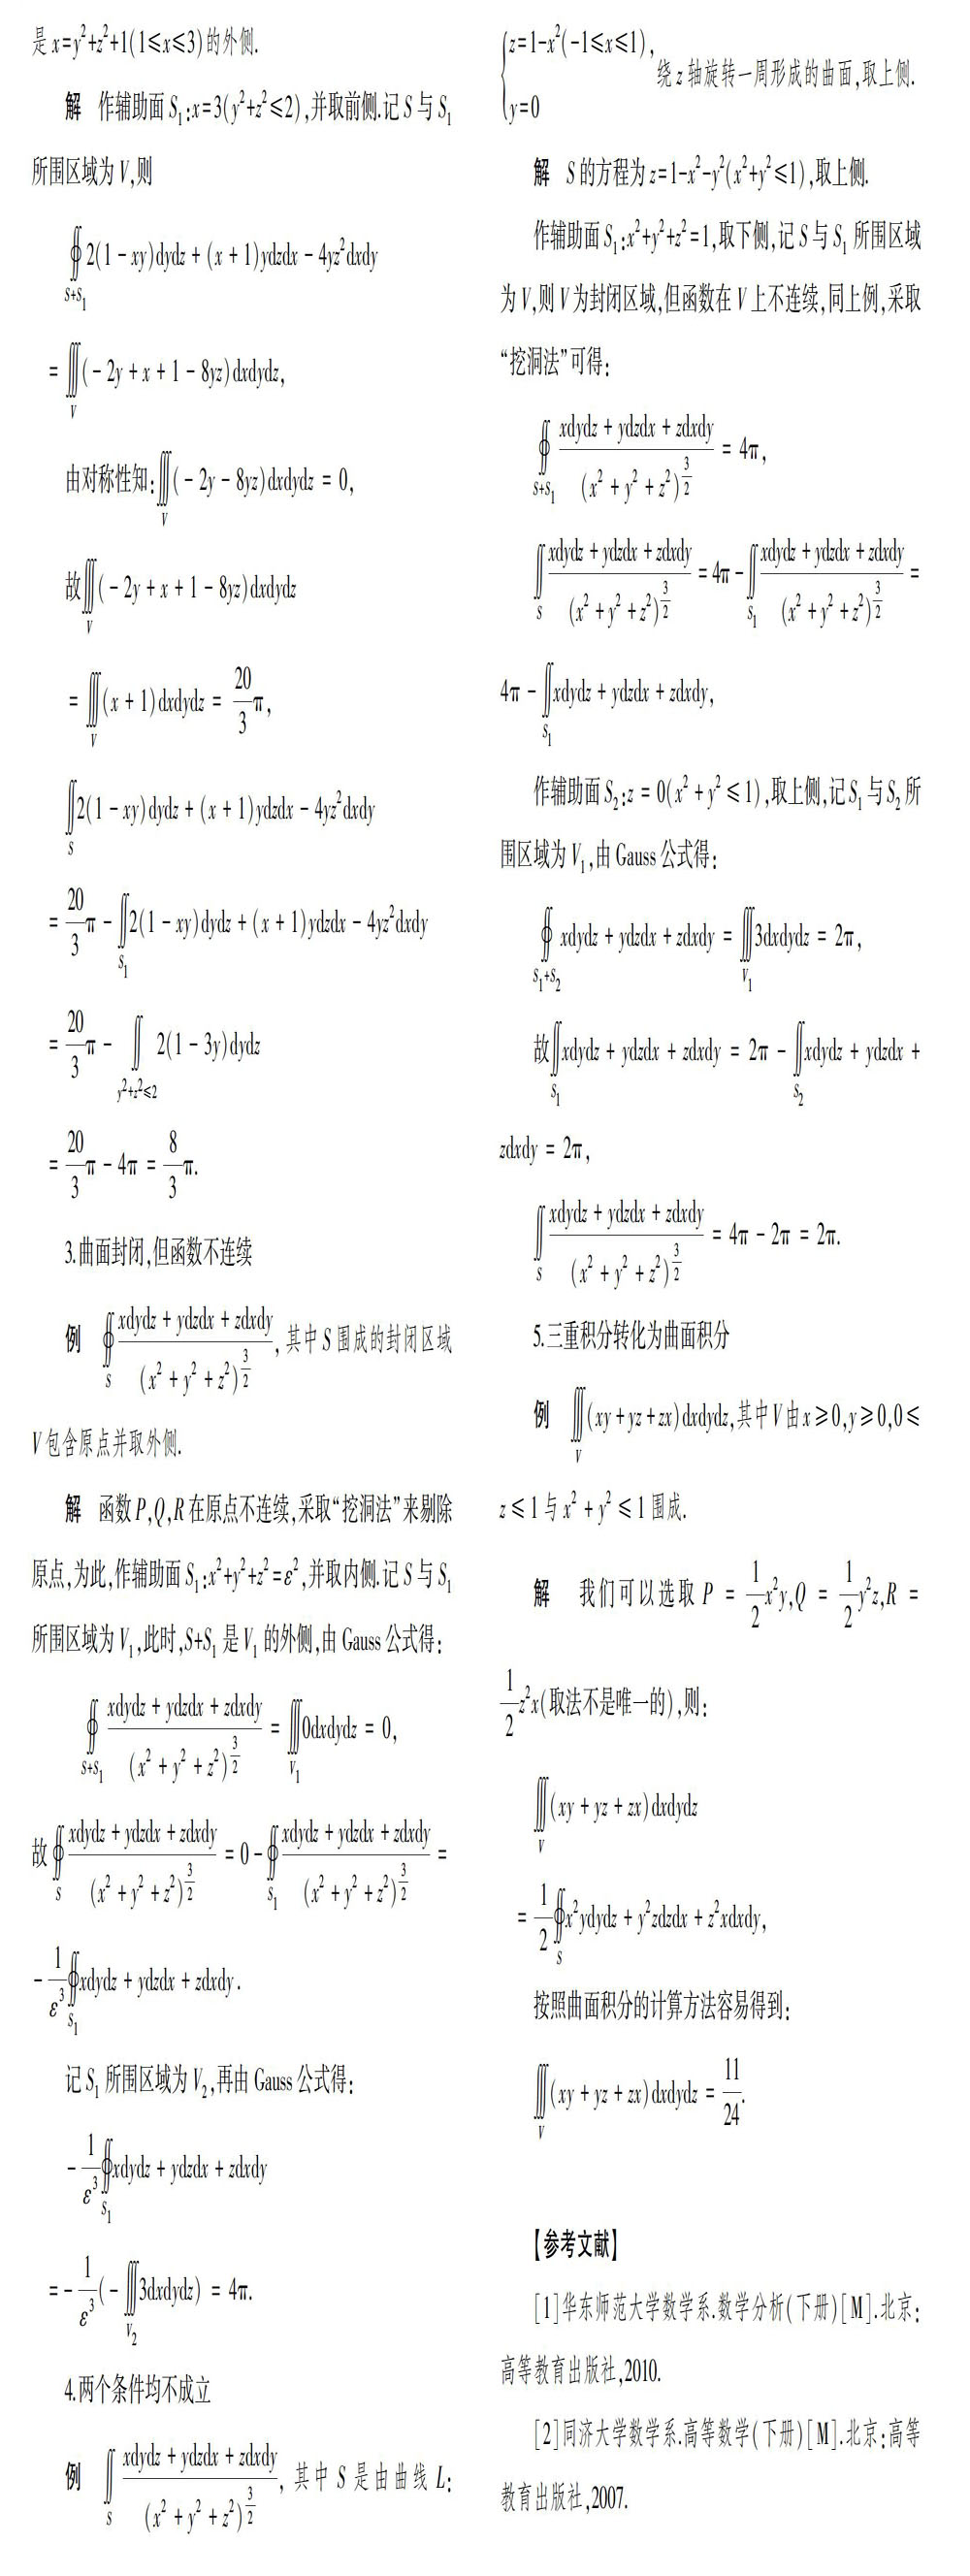 是 x=y²+z²+1(1≤x≤3)的外侧.
解 作辅助面 S₁:x=3(y²+z²≤2),并取前侧.记 S 与 S₁
所围区域为 V,则
∯_{S+S₁} 2(1-xy)dydz+(x+1)ydzdx-4yz²dxdy
=∭_V (-2y+x+1-8yz)dxdydz,
由对称性知:∭_V (-2y-8yz)dxdydz=0,
故∭_V (-2y+x+1-8yz)dxdydz
=∭_V (x+1)dxdydz=\frac{20}{3}π,
∬_S 2(1-xy)dydz+(x+1)ydzdx-4yz²dxdy
=\frac{20}{3}π-∬_{S₁} 2(1-xy)dydz+(x+1)ydzdx-4yz²dxdy
=\frac{20}{3}π-∬_{y²+z²≤2} 2(1-3y)dydz
=\frac{20}{3}π-4π=\frac{8}{3}π.
3.曲面封闭,但函数不连续
例 ∯_S \frac{xdydz+ydzdx+zdxdy}{(x²+y²+z²)^{\frac{3}{2}}},其中 S 围成的封闭区域
V 包含原点并取外侧.
解 函数 P,Q,R 在原点不连续,采取“挖洞法”来剔除
原点,为此,作辅助面 S₁:x²+y²+z²=ε²,并取内侧.记 S 与 S₁
所围区域为 V₁,此时,S+S₁ 是 V₁ 的外侧,由 Gauss 公式得:
∯_{S+S₁} \frac{xdydz+ydzdx+zdxdy}{(x²+y²+z²)^{\frac{3}{2}}}=∭_{V₁} 0dxdydz=0,
故∯_S \frac{xdydz+ydzdx+zdxdy}{(x²+y²+z²)^{\frac{3}{2}}}=0-∯_{S₁} \frac{xdydz+ydzdx+zdxdy}{(x²+y²+z²)^{\frac{3}{2}}}=
-\frac{1}{ε³}∯_{S₁} xdydz+ydzdx+zdxdy.
记 S₁ 所围区域为 V₂,再由 Gauss 公式得:
-\frac{1}{ε³}∯_{S₁} xdydz+ydzdx+zdxdy
=-\frac{1}{ε³}(-∭_{V₂} 3dxdydz)=4π.
4.两个条件均不成立
例 ∬_S \frac{xdydz+ydzdx+zdxdy}{(x²+y²+z²)^{\frac{3}{2}}},其中 S 是由曲线 L:
{z=1-x²(-1≤x≤1),
y=0
绕 z 轴旋转一周形成的曲面,取上侧.
解 S 的方程为 z=1-x²-y²(x²+y²≤1),取上侧.
作辅助面 S₁:x²+y²+z²=1,取下侧,记 S 与 S₁ 所围区域
为 V,则 V 为封闭区域,但函数在 V 上不连续,同上例,采取
“挖洞法”可得:
∯_{S+S₁} \frac{xdydz+ydzdx+zdxdy}{(x²+y²+z²)^{\frac{3}{2}}}=4π,
∬_S \frac{xdydz+ydzdx+zdxdy}{(x²+y²+z²)^{\frac{3}{2}}}=4π-∬_{S₁} \frac{xdydz+ydzdx+zdxdy}{(x²+y²+z²)^{\frac{3}{2}}}=
4π-∬_{S₁} xdydz+ydzdx+zdxdy,
作辅助面 S₂:z=0(x²+y²≤1),取上侧,记 S₁ 与 S₂ 所
围区域为 V₁,由 Gauss 公式得:
∯_{S₁+S₂} xdydz+ydzdx+zdxdy=∭_{V₁} 3dxdydz=2π,
故∬_{S₁} xdydz+ydzdx+zdxdy=2π-∬_{S₂} xdydz+ydzdx+
zdxdy=2π,
∬_S \frac{xdydz+ydzdx+zdxdy}{(x²+y²+z²)^{\frac{3}{2}}}=4π-2π=2π.
5.三重积分转化为曲面积分
例 ∭_V (xy+yz+zx)dxdydz,其中 V 由 x≥0,y≥0,0≤
z≤1 与 x²+y²≤1 围成.
解 我们可以选取 P=\frac{1}{2}x²y,Q=\frac{1}{2}y²z,R=
\frac{1}{2}z²x(取法不是唯一的),则:
∭_V (xy+yz+zx)dxdydz
=\frac{1}{2}∯_S x²ydydz+y²zdzdx+z²xdxdy,
按照曲面积分的计算方法容易得到:
∭_V (xy+yz+zx)dxdydz=\frac{11}{24}.
【参考文献】
[1]华东师范大学数学系.数学分析(下册)[M].北京:
高等教育出版社,2010.
[2]同济大学数学系.高等数学(下册)[M].北京:高等
教育出版社,2007.